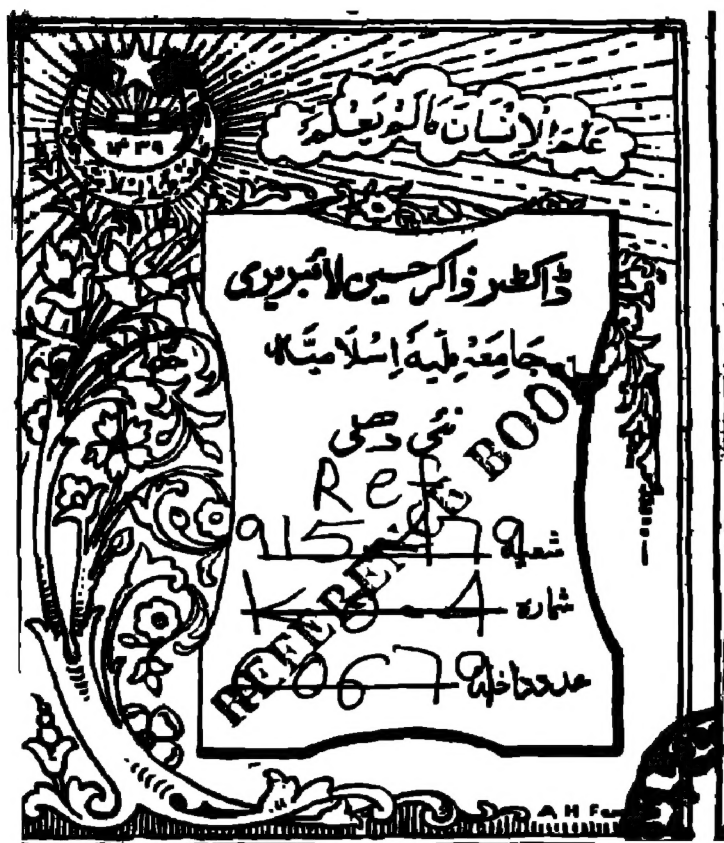 عَلَّمَ الْاِنْسَانَ مَا لَمْ يَعْلَمْ
ڈاکٹر ذاکر حسین لائبریری
جَامِعَہ مِلّیَہ اِسْلَامیَّہ
نئی دھلی
Ref
شعبہ 915.479
شمارہ
عدد داخلہ
REFERENCE BOOK
A H